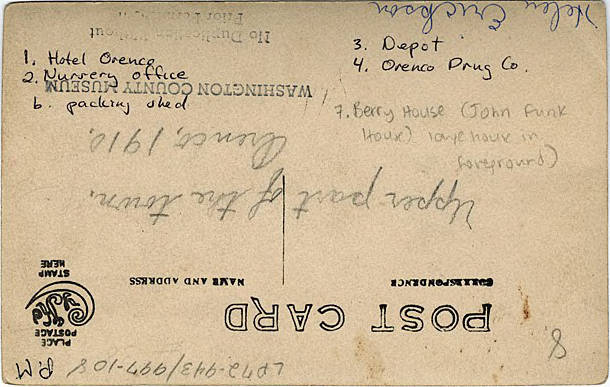 Helen Erickson
No Duplication Without
Prior Permission
1. Hotel Orenco
2. Nursery office
6. packing shed
WASHINGTON COUNTY MUSEUM
3. Depot
4. Orenco Drug Co.
7. Berry House (John Funk
House) large house in
foreground)
Upper part of the town.
Orenco, 1910.
CORRESPONDENCE
NAME AND ADDRESS
POST CARD
PLACE
POSTAGE
STAMP
HERE
8
P.M